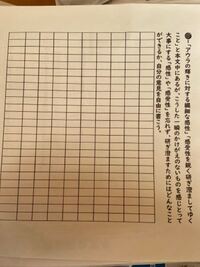 「アウラの輝きに対する繊細な感性」「感受性を鋭く研ぎ澄ましてゆく
こと」と本文中にあるが、こうした一瞬のかけがえのないものを感じとって
大事にする「感性」や「感受性」を忘れず、研ぎ澄ますためにはどんなこと
ができるか、自分の意見を自由に書こう。